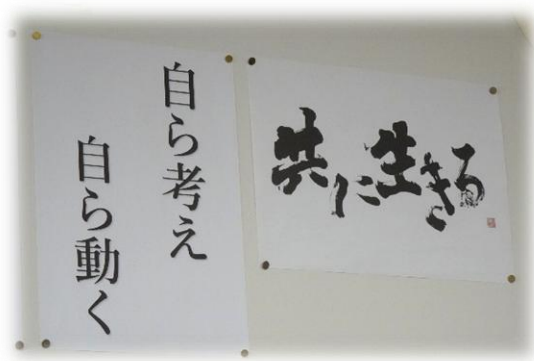 自ら考え
自ら動く
共に生きる